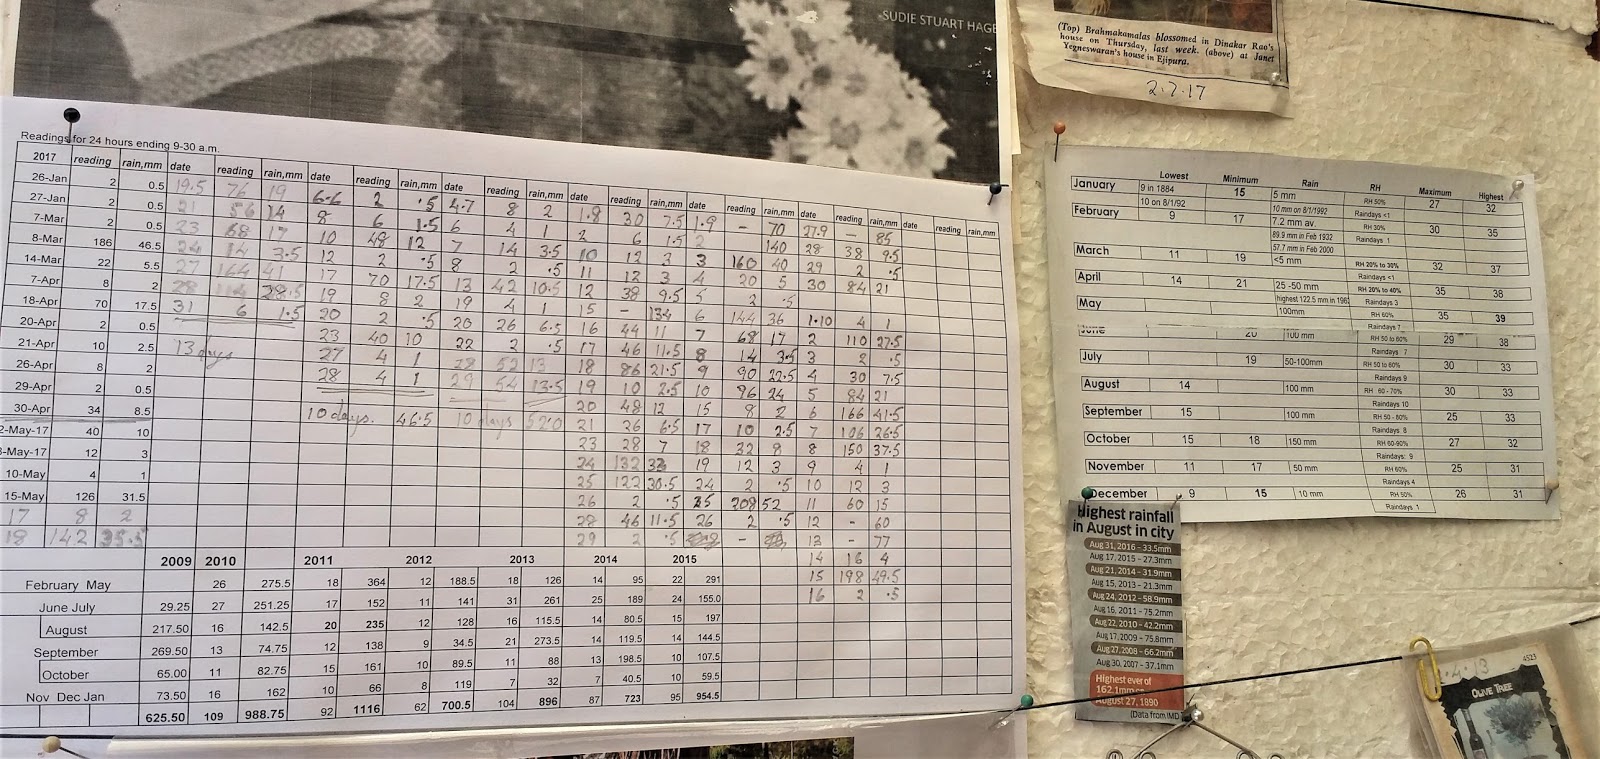 SUDIE STUART HAGE
(Top) Brahmakamalas blossomed in Dinakar Rao's
house on Thursday, last week. (above) at Janet
Yegneswaran's house in Ejipura.
2.7.17
Readings for 24 hours ending 9-30 a.m.
2017 reading rain,mm date reading rain,mm date reading rain,mm date reading rain,mm date reading rain,mm date reading rain,mm date reading rain,mm date reading rain,mm
26-Jan 2 0.5 19.5 76 19 6-6 2 .5 4.7 8 2 1.8 30 7.5 1.9 - 70 27.9 - 85
27-Jan 2 0.5 21 56 14 8 6 1.5 6 4 1 2 6 1.5 2 140 28 38 9.5
7-Mar 2 0.5 23 68 17 10 48 12 7 14 3.5 10 12 3 3 160 40 29 2 .5
8-Mar 186 46.5 24 14 3.5 12 2 .5 8 2 .5 11 12 3 4 20 5 30 84 21
14-Mar 22 5.5 27 164 41 17 70 17.5 13 42 10.5 12 38 9.5 5 2 .5
7-Apr 8 2 28 114 28.5 19 8 2 19 4 1 15 - 134 6 144 36 1.10 4 1
18-Apr 70 17.5 31 6 1.5 20 2 .5 20 26 6.5 16 44 11 7 68 17 2 110 27.5
20-Apr 2 0.5 13 days 23 40 10 22 2 .5 17 46 11.5 8 14 3.5 3 2 .5
21-Apr 10 2.5 27 4 1 28 52 13 18 86 21.5 9 90 22.5 4 30 7.5
26-Apr 8 2 28 4 1 29 54 13.5 19 10 2.5 10 96 24 5 84 21
29-Apr 2 0.5 10 days. 46.5 10 days 52.0 20 48 12 15 8 2 6 166 41.5
30-Apr 34 8.5 21 26 6.5 17 10 2.5 7 106 26.5
2-May-17 40 10 23 28 7 18 32 8 8 150 37.5
3-May-17 12 3 24 132 33 19 12 3 9 4 1
10-May 4 1 25 122 30.5 24 2 .5 10 12 3
15-May 126 31.5 26 2 .5 25 208 52 11 60 15
17 8 2 28 46 11.5 26 2 .5 12 - 60
18 142 35.5 29 2 .5 - 13 - 77
14 16 4
15 198 49.5
16 2 .5
2009 2010 2011 2012 2013 2014 2015
February May 26 275.5 18 364 12 188.5 18 126 14 95 22 291
June July 29.25 27 251.25 17 152 11 141 31 261 25 189 24 155.0
August 217.50 16 142.5 20 235 12 128 16 115.5 14 80.5 15 197
September 269.50 13 74.75 12 138 9 34.5 21 273.5 14 119.5 14 144.5
October 65.00 11 82.75 15 161 10 89.5 11 88 13 198.5 10 107.5
Nov Dec Jan 73.50 16 162 10 66 8 119 7 32 7 40.5 10 59.5
625.50 109 988.75 92 1116 62 700.5 104 896 87 723 95 954.5
Lowest Minimum Rain RH Maximum Highest
January 9 in 1884 15 5 mm RH 50% 27 32
10 on 8/1/92 10 mm on 8/1/1992 Raindays <1
February 9 17 7.2 mm av. RH 30% 30 35
89.9 mm in Feb 1932 Raindays 1
57.7 mm in Feb 2000
March 11 19 <5 mm RH 20% to 30% 32 37
Raindays <1
April 14 21 25 -50 mm RH 20% to 40% 35 38
highest 122.5 mm in 196 Raindays 3
May 100mm RH 60% 35 39
Raindays 7
June 20 100 mm RH 50 to 80% 29 38
Raindays 7
July 19 50-100mm RH 50 to 60% 30 33
Raindays 9
August 14 100 mm RH 60 - 70% 30 33
Raindays 10
September 15 100 mm RH 50 - 80% 25 33
Raindays 8
October 15 18 150 mm RH 60-90% 27 32
Raindays: 9
November 11 17 50 mm RH 60% 25 31
Raindays 4
December 9 15 10 mm RH 50% 26 31
Raindays 1
Highest rainfall
in August in city
Aug 31, 2016 – 33.5mm
Aug 17, 2015 – 27.3mm
Aug 21, 2014 – 31.9mm
Aug 15, 2013 – 21.3mm
Aug 24, 2012 – 58.9mm
Aug 16, 2011 – 75.2mm
Aug 22, 2010 – 42.2mm
Aug 17, 2009 – 75.8mm
Aug 27, 2008 – 66.2mm
Aug 30, 2007 – 37.1mm
Highest ever of
162.1mm
August 27, 1890
(Data from IMD)
.4.13 4523
OLIVE TREE